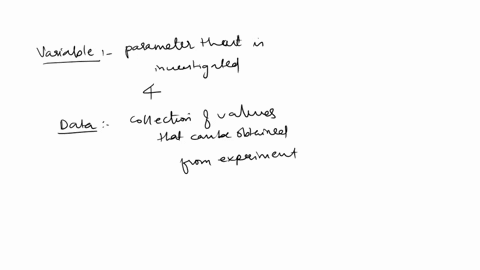 Variable :- parameter that is
investigated
&
Data :- collection of values
that can be obtained
from experiment